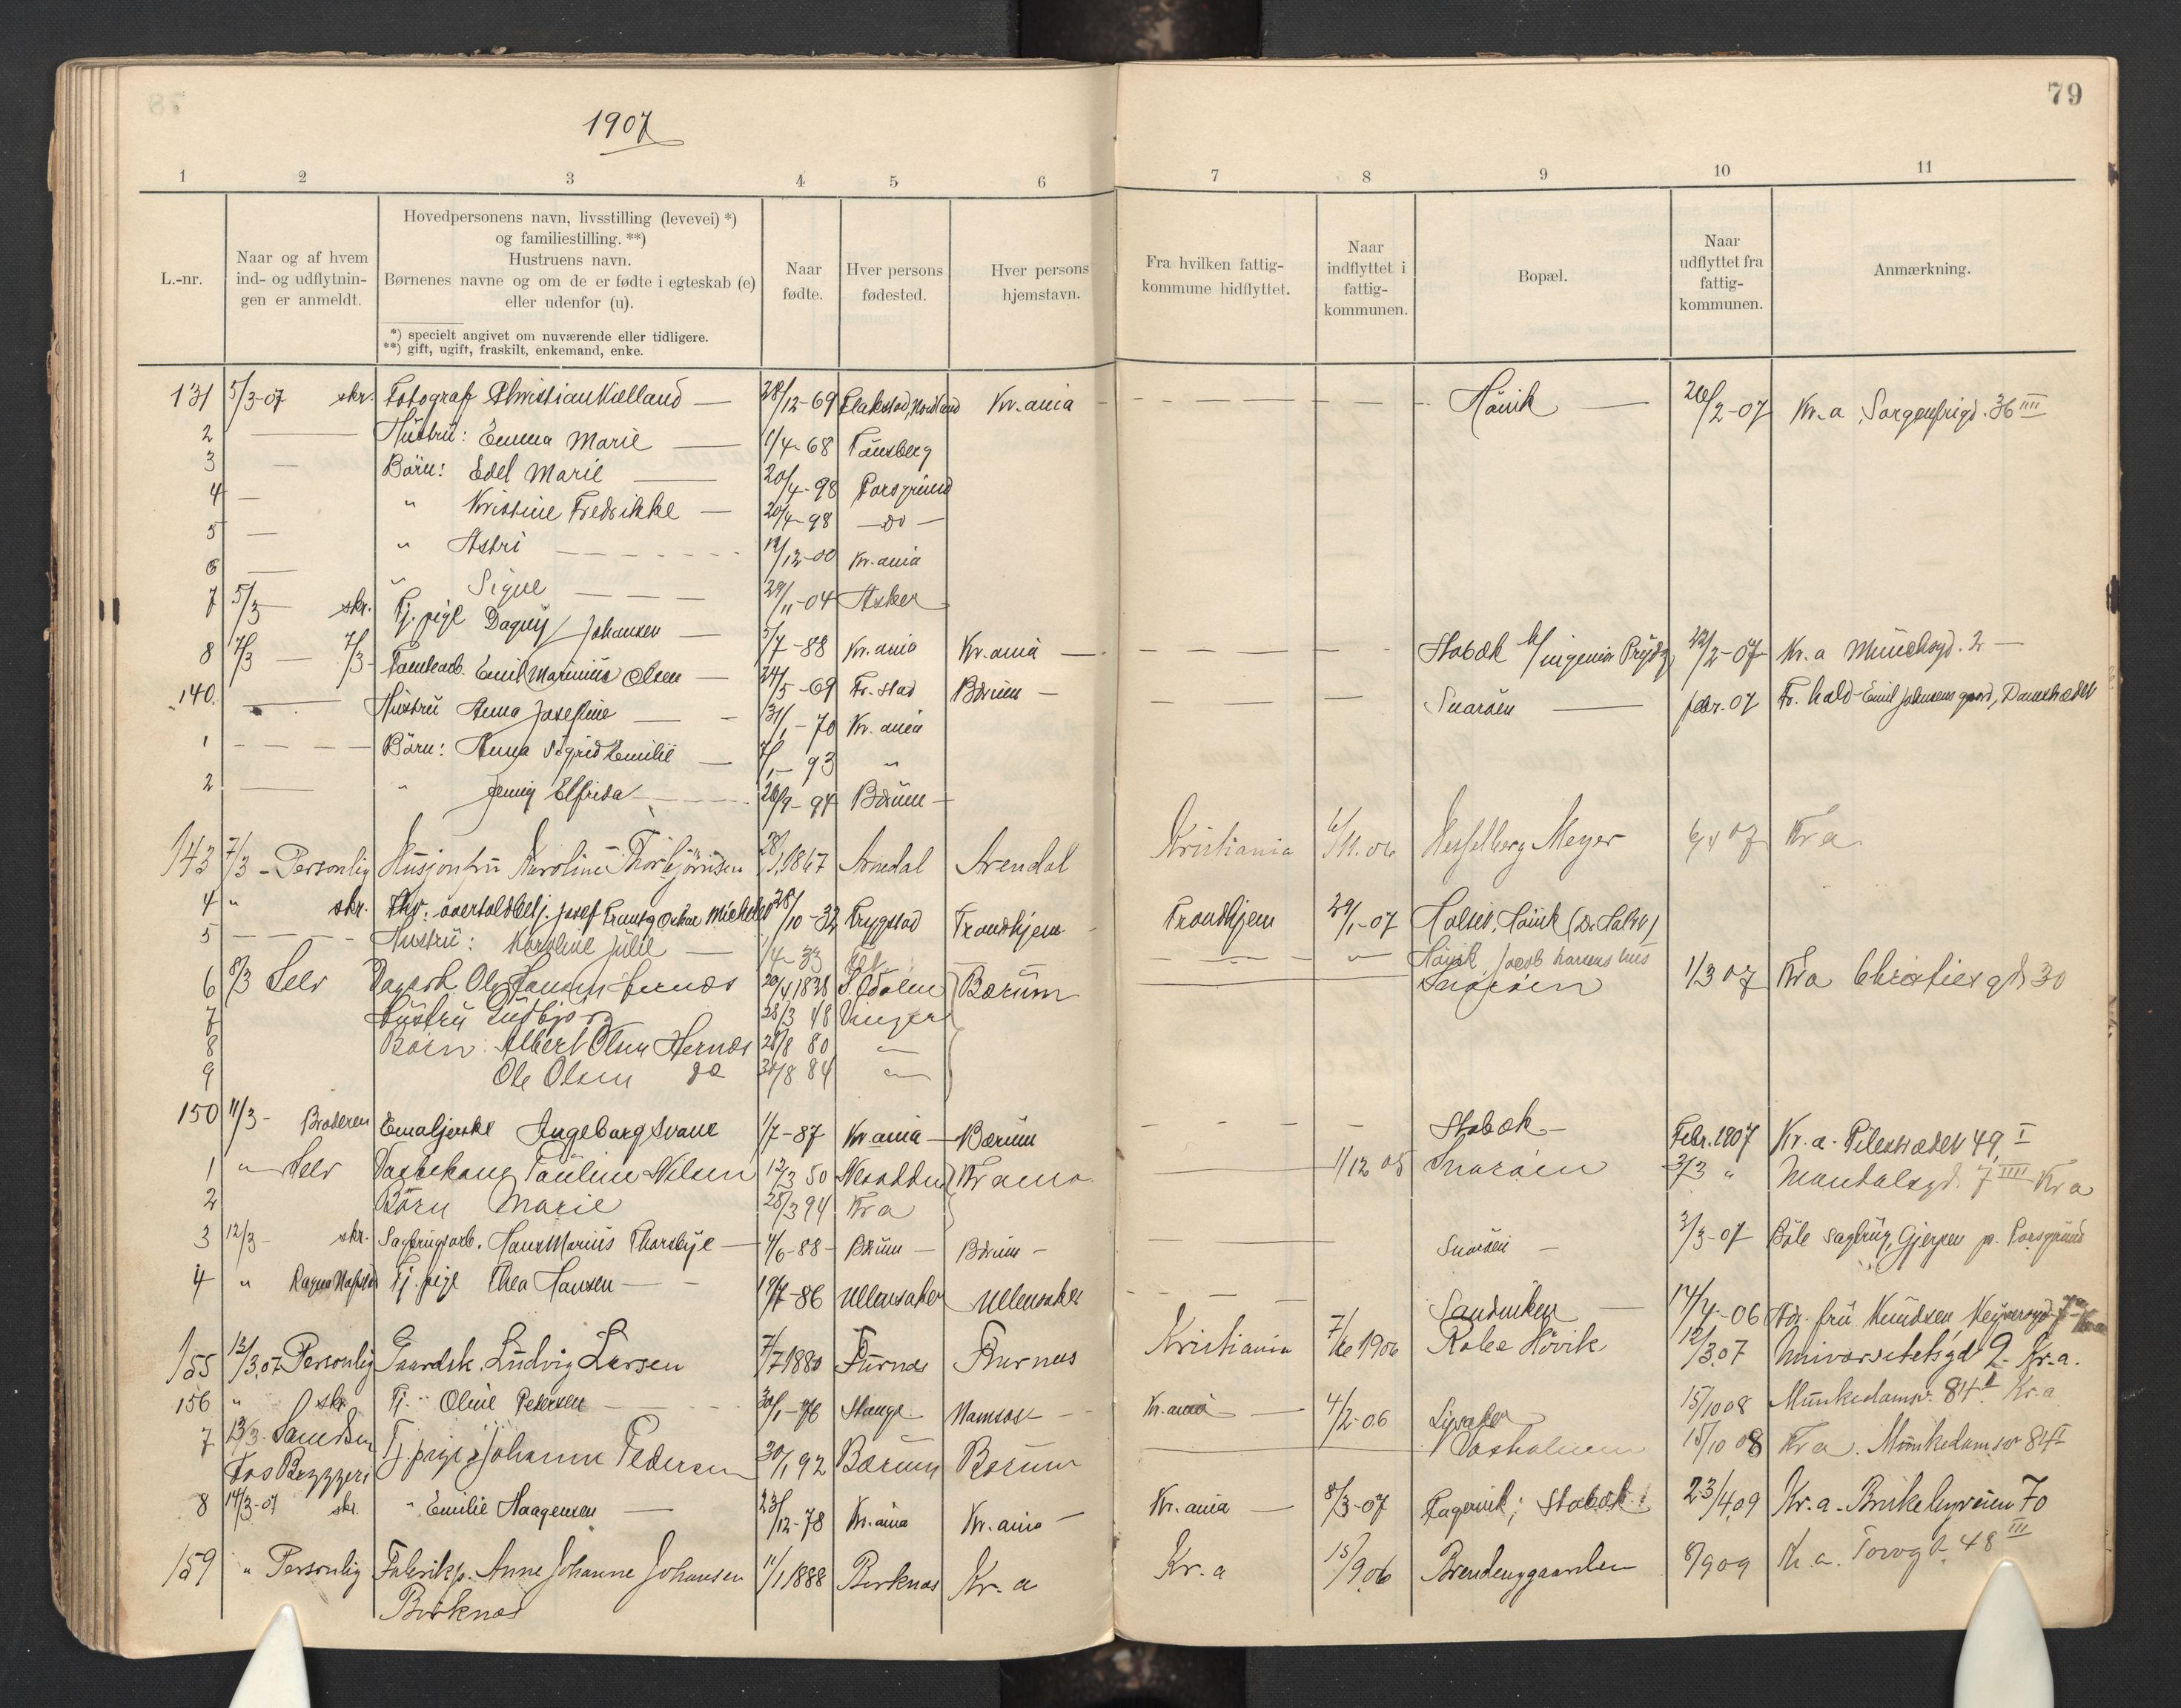 79
1907
1 2 3 4 5 6 7 8 9 10 11
L.-nr.
Naar og af hvem
ind- og udflytnin-
gen er anmeldt.
Hovedpersonens navn, livsstilling (levevei) *)
og familiestilling. **)
Hustruens navn.
Børnenes navne og om de er fødte i egteskab (e)
eller udenfor (u).
*) specielt angivet om nuværende eller tidligere.
**) gift, ugift, fraskilt, enkemand, enke.
Naar
fødte.
Hver persons
fødested.
Hver persons
hjemstavn.
Fra hvilken fattig-
kommune hidflyttet.
Naar
indflyttet i
fattig-
kommunen.
Bopæl.
Naar
udflyttet fra
fattig-
kommunen.
Anmærkning.
131 5/3-07 skr. Fotograf Christian Kielland — 28/12-69 Flakstad, Nordland Kr.ania — Hövik — 26/2-07 Kr.a Sorgenfrigd. 36 IIII
2 — Hustru: Emma Marie — 1/4-68 Tönsberg
3 — Börn: Edel Marie — 20/4-98 Porsgrund
4 — " Kristine Fredrikke — 20/4-98 — do —
5 — " Astri — 19/12-00 Kr.ania
6 — " Signe — 29/11-04 Asker
7 5/3 — skr. Tj. pige Dagny Johansen — 5/7-88 Kr.ania Kr.ania — Stabæk h/ ingeniör Prydz 22/2-07 Kr.a Munchsgd. 2 —
8 7/3 — 7/3 Tomtearb. Emil Marinius Olsen — 24/5-69 Fr.stad Bærum — Snaröen — febr. 07 Fr.hald - Emil Johnsens gaard, Damstrædet
140. — Hustru Anna Josefine — 31/1-70 Kr.ania
1 — Börn: Anna Sigrid Emilie — 7/1-93 "
2 — " Jenny Elfrida — 26/9-94 Bærum —
143 7/3 - Personlig Husjomfru Karoline Thorbjörnsen 28/1 1867 Arendal Arendal Kristiania 6/11.06 Hesselberg Meyer 6/4 07 Kr a
4 " skr. Fhv. overtoldbetj. Josef Frantz Oskar Michelet 28/10-32 Trygstad Trondhjem Trondhjem 29/1-07 Holtet, Hövik (Dr. Holtet)
5 — Hustru: Karoline Julie — 1/4-33 — Hövik, Jacob Hansens hus
6 8/3 Selv Dagarb. Ole Hansen Hernæs 20/4 1838 S. Odalen Bærum — Snaröen 1/3 07 Kra Christiesgd 30
7 Hustru Gudbjorg 28/3 48 Vinger
8 Börn: Albert Olsen Hernæs 28/8 80 "
9 Ole Olsen do 30/8 84 "
150 11/3 - Broderen Emaljerske Ingeborg Svane 1/7-87 Kr.ania — Bærum — Stabæk — Febr. 1907 Kr.a. Pilestrædet 49, I
1 " Selv Vaskekone Pauline Nilsen 12/3 50 Nesodden Kr ania — 1/12 05 Snaröen 3/3 " Mandalsgd. 7 IIII Kr a
2 Börn Marie 28/3 94 Kr a
3 12/3 - skr. Sagbrugsarb. Hans Marius Thorsbye — 4/6-88 — Bærum — Bærum — Snaröen — 3/3-07 Böle sagbrug, Gjerpen pr. Porsgrund
4 " Tj. pige Thea Hansen — 19/7-86 Ullensaker Ullensaker — Sandviken — 14/4-06 Adr. fru Knudsen, Keysersgd. 7
155 12/3.07 Personlig Gaardsk. Ludvig Larsen 7/7 1880 Furnæs Furnæs Kristiania 7/10 1906 Ralee Hövik 12/3.07 Universitetsgd 9. Kr.a.
156 " skr. Tj. " Oline Petersen — 30/1-76 Stange Namsos — Kr.ania — 4/2-06 15/10 08 Munkedamsv. 84 I Kr.a
7 13/3 - Sandsen Fos Bryggeri Tj. pige Johanne Pedersen 30/1 92 Bærum Bærum — 15/10 08 Kr a. Munkedamsv 84 I
8 14/3-07 skr. " Emilie Haagensen — 23/12-78 Kr.ania Kr.ania — Kr.ania — 8/3-07 Fagervik; Stabæk. 23/4.09 Kr.a - Birkelunveien 70
159 " Personlig Fabrikp. Anne Johanne Johansen 11/1 1888 Birknæs Kr. a Kr. a 15/9.06 Brendenggaarden 8/9 09 Kr.a. Torvgt. 48 III
Birknæs